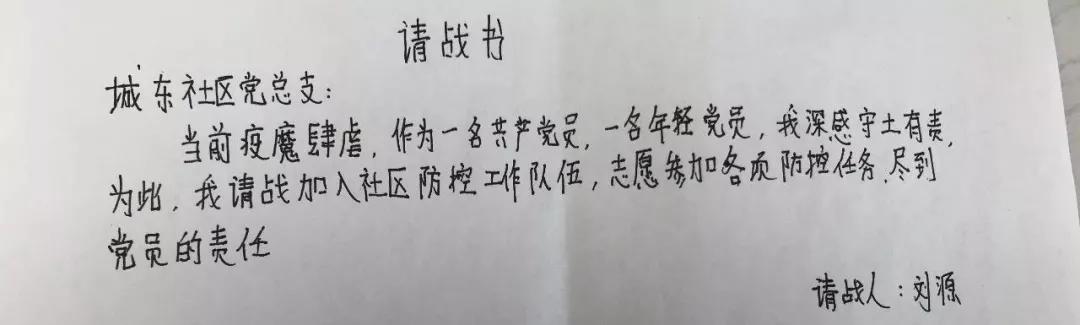 请战书
城东社区党总支：
当前疫魔肆虐，作为一名共产党员，一名年轻党员，我深感守土有责，
为此，我请战加入社区防控工作队伍，志愿参加各项防控任务，尽到
党员的责任
请战人：刘源